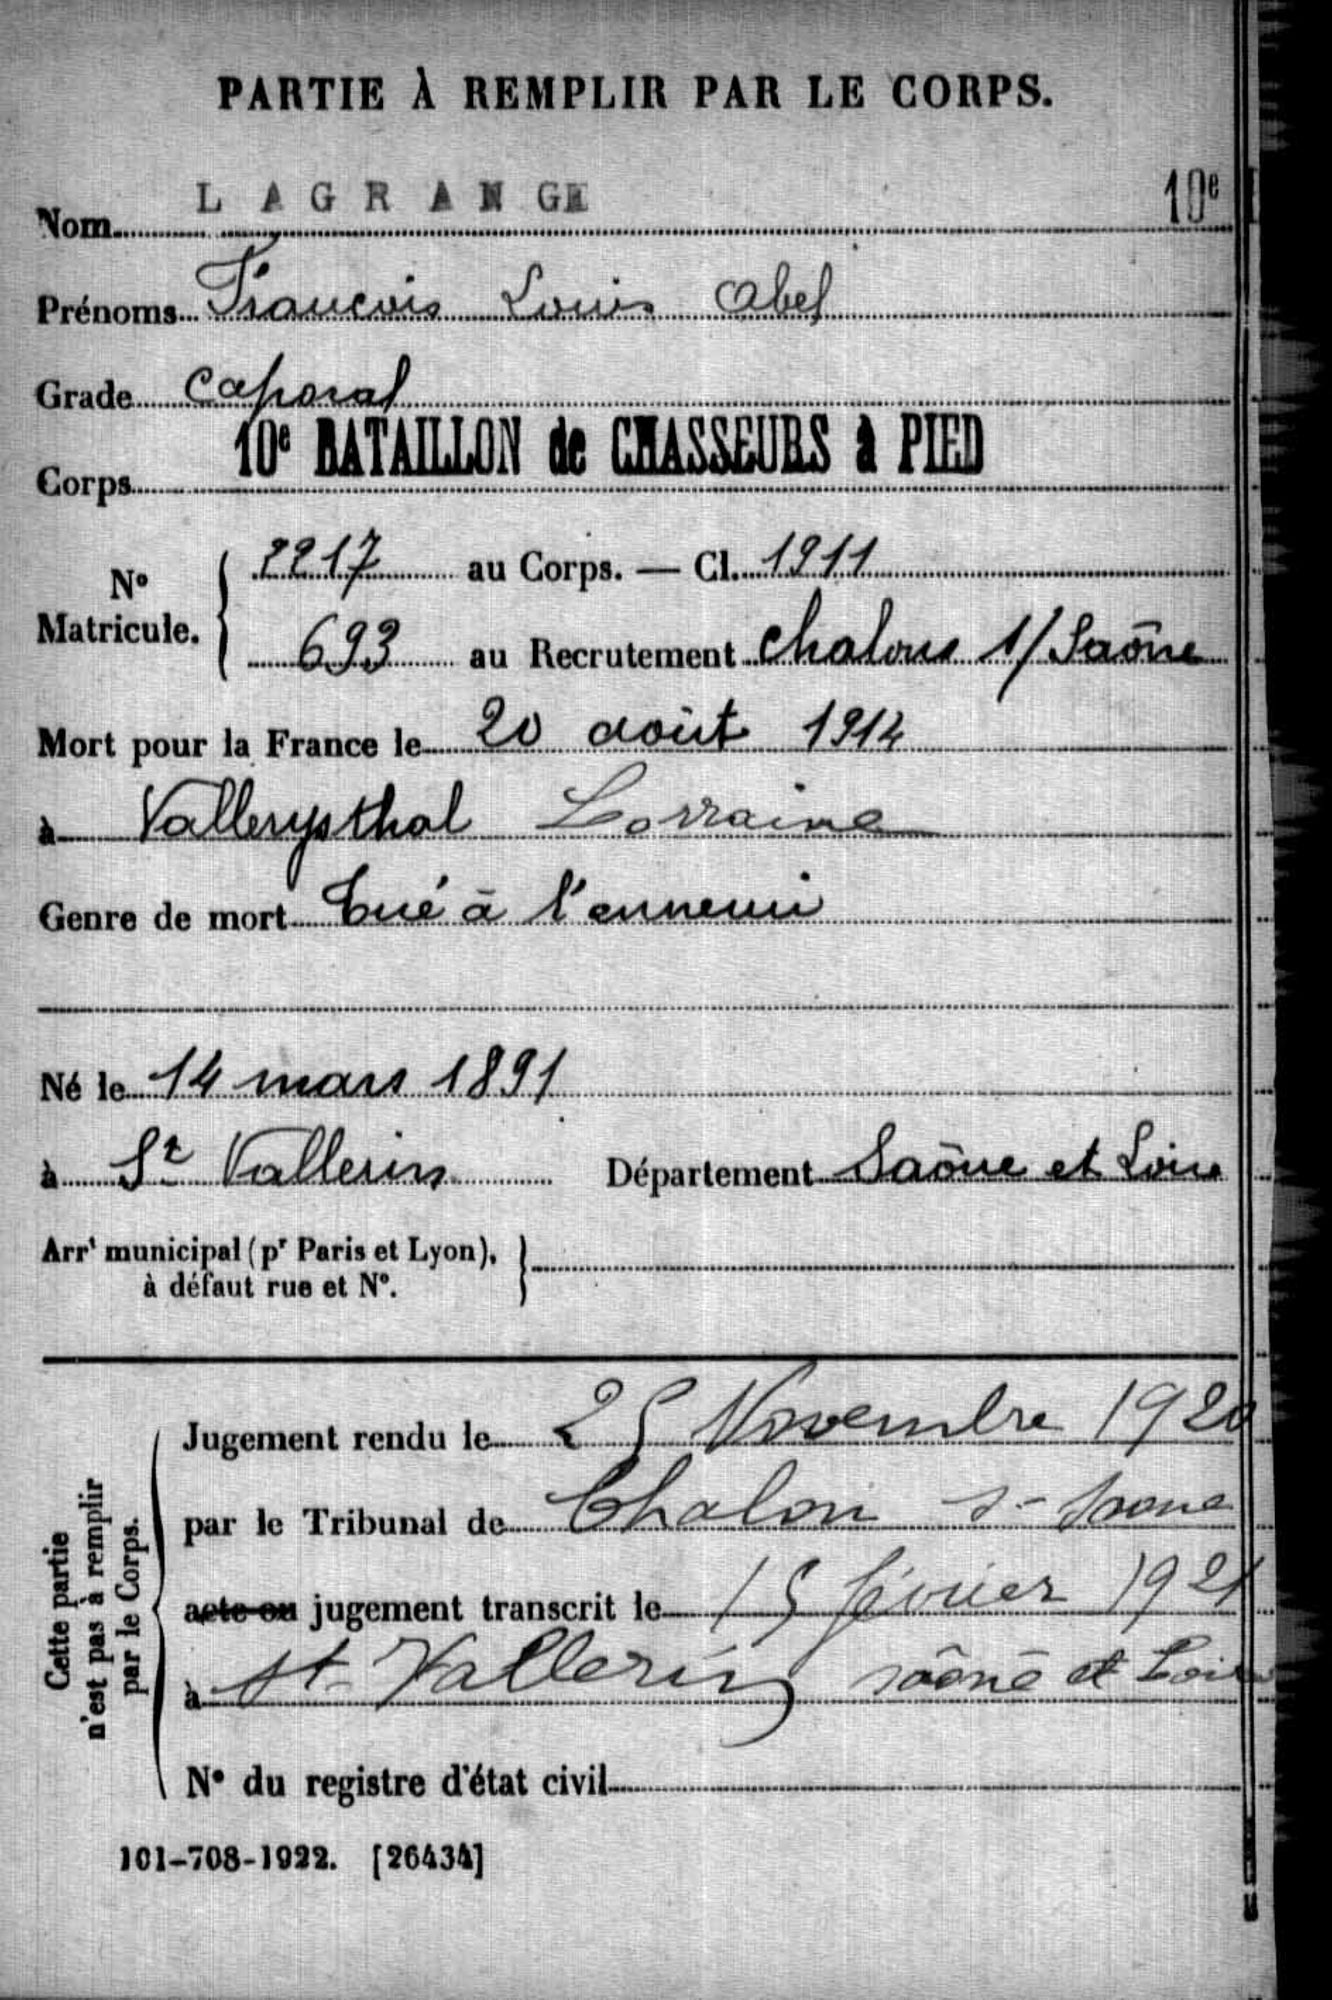 PARTIE À REMPLIR PAR LE CORPS.
Nom LAGRANGE 10e
Prénoms François Louis Abel
Grade Caporal
Corps 10e BATAILLON de CHASSEURS à PIED
N° Matricule. 2217 au Corps. — Cl. 1911
693 au Recrutement Chalons s/ Saône
Mort pour la France le 20 août 1914
à Vallerysthal Lorraine
Genre de mort Tué à l'ennemi
Né le 14 mars 1891
à St Vallerin Département Saône et Loire
Arrt municipal (pr Paris et Lyon),
à défaut rue et N°.
Cette partie
n'est pas à remplir
par le Corps.
Jugement rendu le 25 Novembre 1920
par le Tribunal de Chalon s-Saone
acte ou jugement transcrit le 15 février 1921
à St-Vallerin Saône et Loire
N° du registre d'état civil
101-708-1922. [26434]